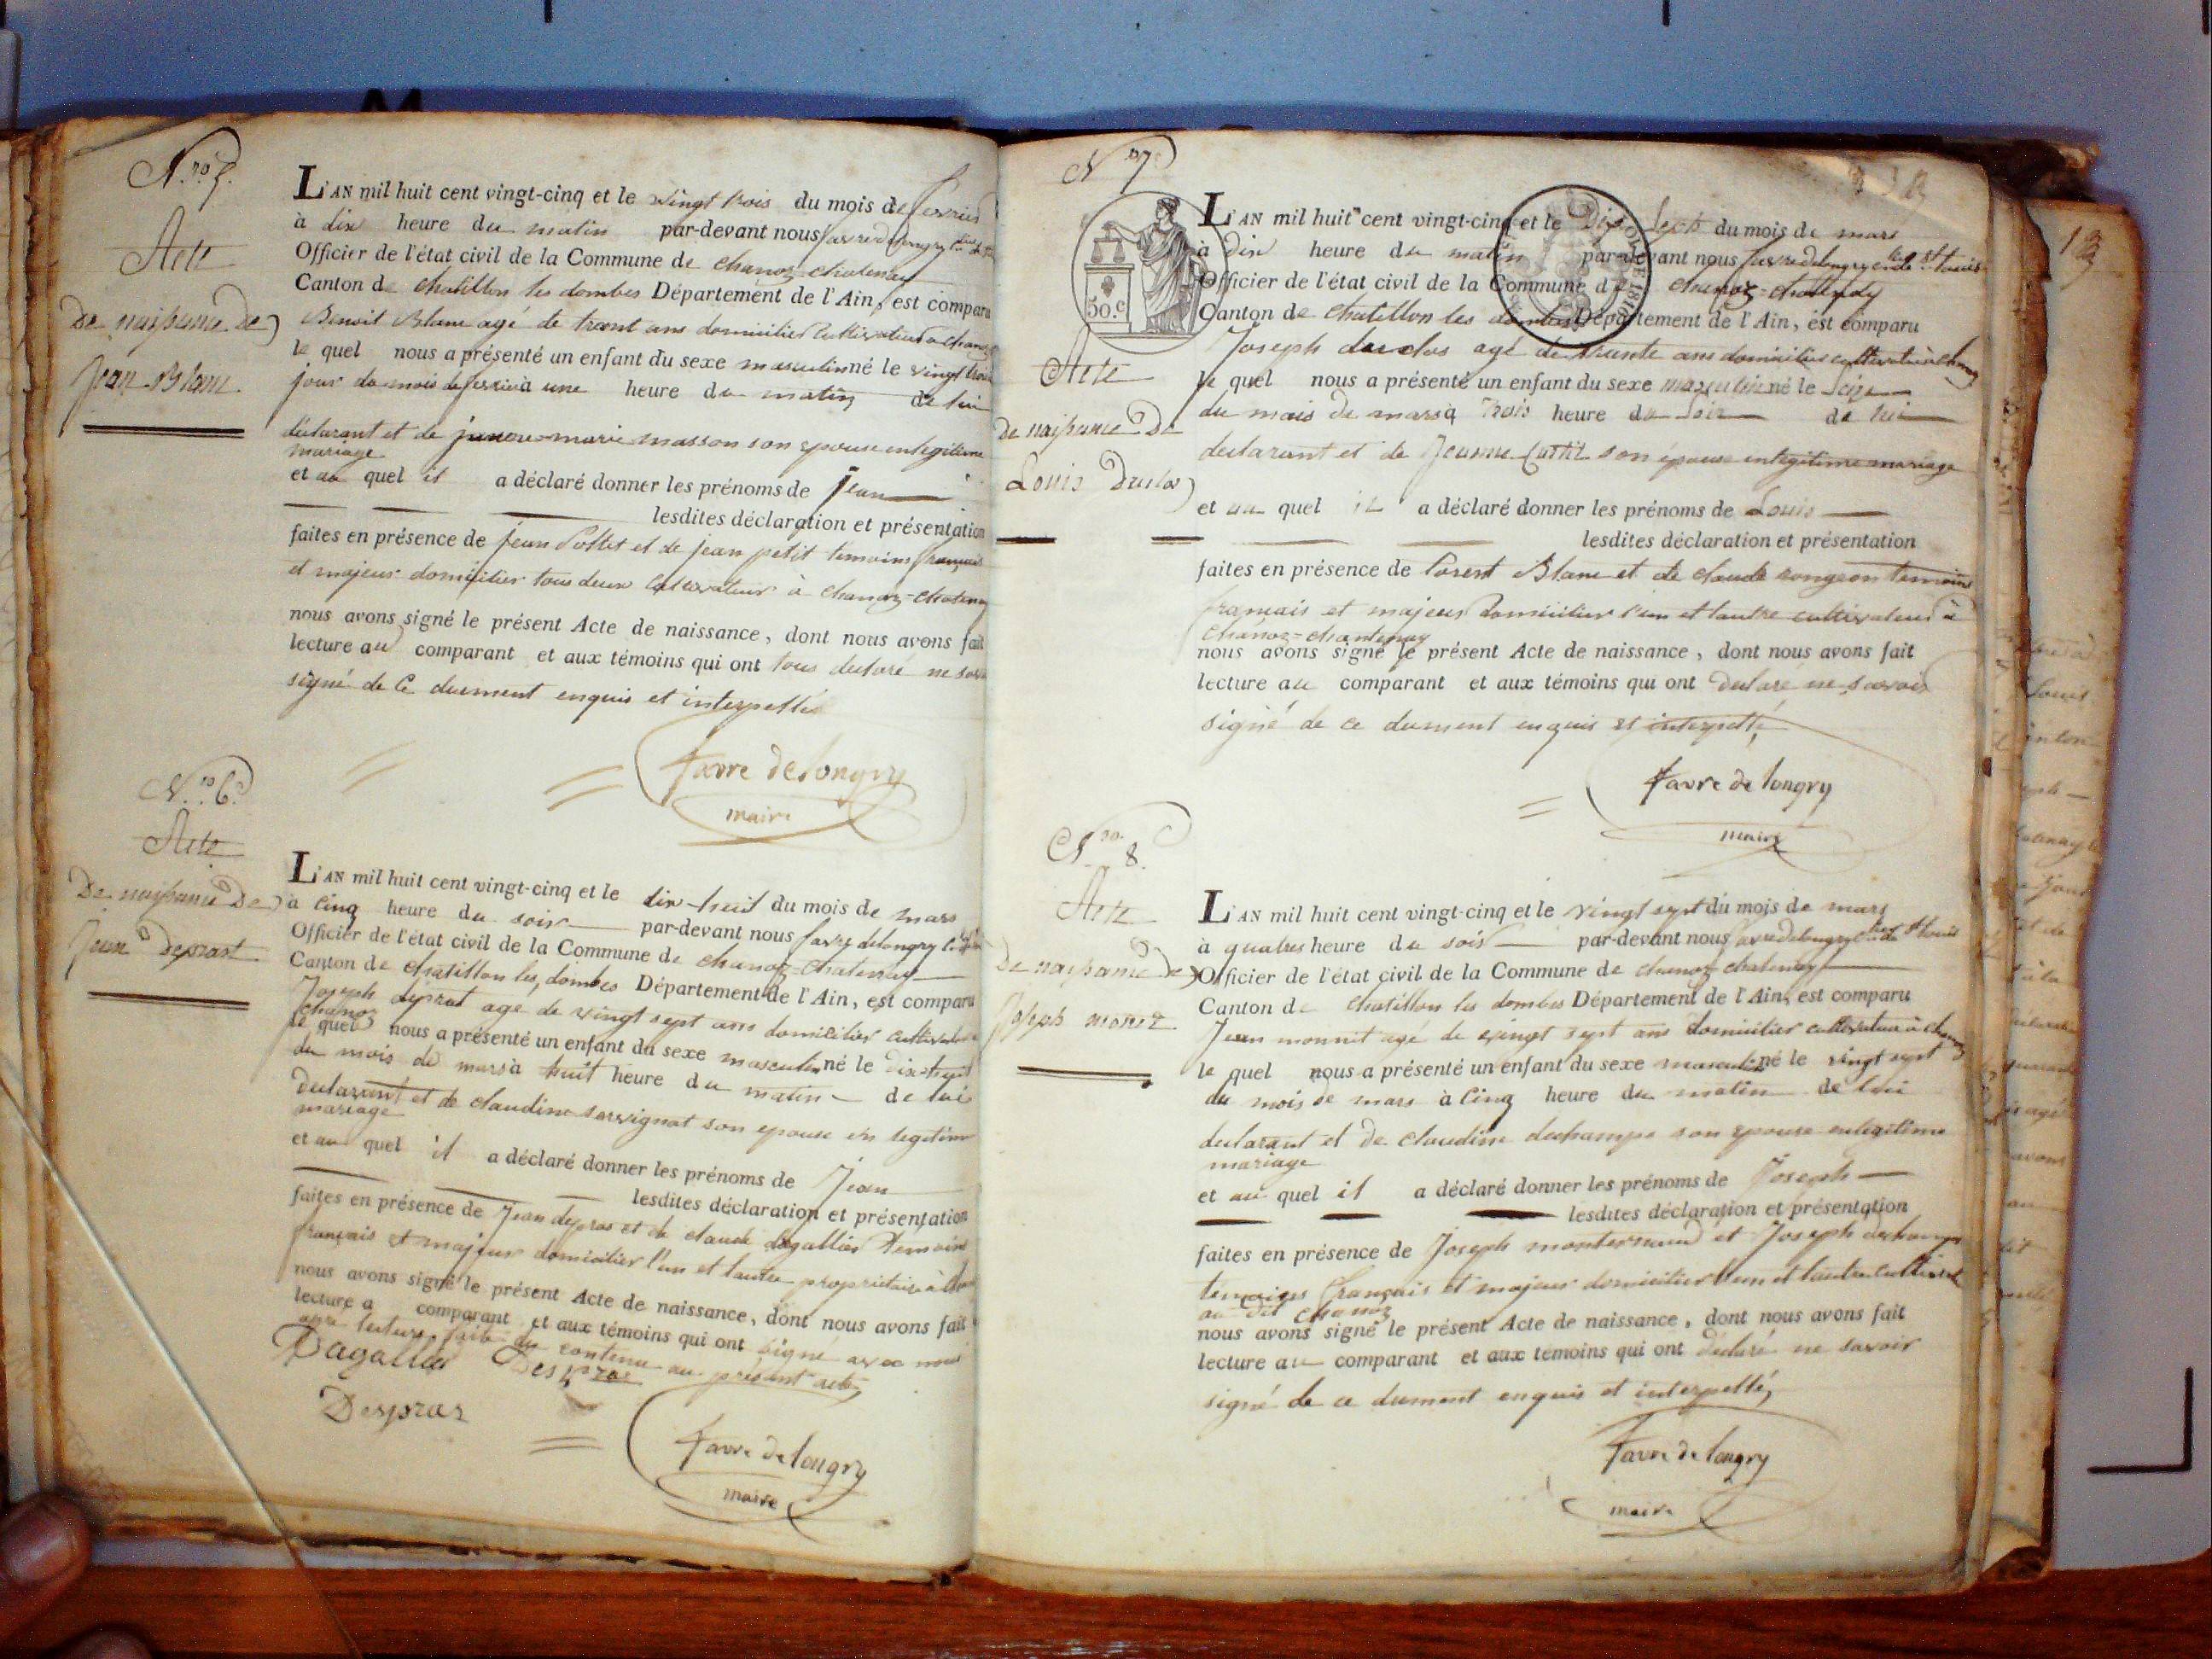 N.ro 5.
Acte
De naissance de
Jean Blanc
L'AN mil huit cent vingt-cinq et le vingt trois du mois de fevrier
à dix heure du matin par-devant nous favre delongry
Officier de l'état civil de la Commune de chanoz-chatenay
Canton de chatillon les dombes Département de l'Ain, est comparu
Benoit Blanc agé de trent ans domicilier cultivateur a chanoz
le quel nous a présenté un enfant du sexe masculin né le vingt trois
jour du mois de fevrier à une heure du matin de lui
déclarant et de marie masson son epouse en legitime
mariage
et au quel il a déclaré donner les prénoms de jean
lesdites déclaration et présentation
faites en présence de jean et de jean petit temoins français
et majeur domicilier tous deux cultivateur à chanoz-chatenay
nous avons signé le présent Acte de naissance, dont nous avons fait
lecture au comparant et aux témoins qui ont tous declaré ne savoir
signé de ce dument enquis et interpellé
favre delongry
maire
N.ro 6.
Acte
De naissance De
Jean deprast
L'AN mil huit cent vingt-cinq et le dix-huit du mois de mars
à cinq heure du soir par-devant nous favre delongry
Officier de l'état civil de la Commune de chanoz-chatenay
Canton de chatillon les dombes Département de l'Ain, est comparu
Joseph deprat agé de vingt sept ans domicilier cultivateur
chanoz
le quel nous a présenté un enfant du sexe masculin né le dix-huit
du mois de mars à huit heure du matin de lui
declarant et de claudine servignat son epouse en legitime
mariage
et au quel il a déclaré donner les prénoms de Jean
lesdites déclaration et présentation
faites en présence de Jean depras et de claude dagallier temoins
français et majeur domicilier l'un et lautre propriétaire à
nous avons signé le présent Acte de naissance, dont nous avons fait
lecture a comparant et aux témoins qui ont signé avec nous
apre lecture faite du contenu au présent acte
Dagallier Despras
Despras
favre de longry
maire
N.ro 7
Acte
de naissance De
Louis Duclos
50.c
L'AN mil huit cent vingt-cinq et le Dix Sept du mois de mars
à dix heure du matin par-devant nous favre delongry St louis
Officier de l'état civil de la Commune de chanoz-chatenay
Canton de chatillon les dombes Département de l'Ain, est comparu
Joseph duclos agé de trente ans domicilier cultivateur à chanoz
le quel nous a présenté un enfant du sexe masculin né le Seize
du mois de mars à trois heure du soir de lui
declarant et de Jeanne son épouse en legitime mariage
et au quel il a déclaré donner les prénoms de Louis
lesdites déclaration et présentation
faites en présence de Blanc et de claude rongeon temoins
français et majeur domicilier l'un et lautre cultivateur à
chanoz-chantenay
nous avons signé le présent Acte de naissance, dont nous avons fait
lecture au comparant et aux témoins qui ont declaré ne savoir
signé de ce dument enquis et interpellé
favre de longry
maire
N.ro 8.
Acte
De naissance de
Joseph monet
L'AN mil huit cent vingt-cinq et le vingt sept du mois de mars
à quatres heure du soir par-devant nous favre delongry St louis
Officier de l'état civil de la Commune de chanoz chatenay
Canton de chatillon les dombes Département de l'Ain, est comparu
Jean monnet agé de vingt sept ans domicilier cultivateur à chanoz
le quel nous a présenté un enfant du sexe masculin né le vingt sept
du mois de mars à cinq heure du matin de lui
declarant et de claudine dechampe son epouse en legitime
mariage
et au quel il a déclaré donner les prénoms de Joseph
lesdites déclaration et présentation
faites en présence de Joseph monternaud et Joseph dechamps
témoins français et majeur domicilier l'un et lautre cultivat
au dit chanoz
nous avons signé le présent Acte de naissance, dont nous avons fait
lecture au comparant et aux témoins qui ont déclaré ne savoir
signé de ce dument enquis et interpellé,
favre de longry
maire